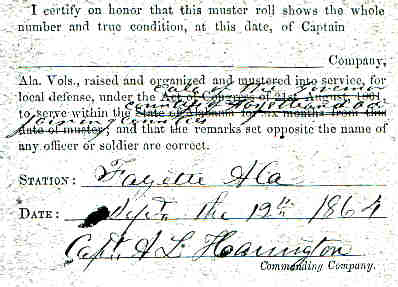 I certify on honor that this muster roll shows the whole
number and true condition, at this date, of Captain
Company,
Ala. Vols., raised and organized and mustered into service, for
call of the governor
local defense, under the Act of Congress of 21st August 1861
county of Fayette and ad
to serve within the State of Alabama for six months from this
joining counties
date of muster; and that the remarks set opposite the name of
any officer or soldier are correct.
STATION: Fayette Ala
DATE: Sept the 12th 1864
Capt A L Harrington
Commanding Company.